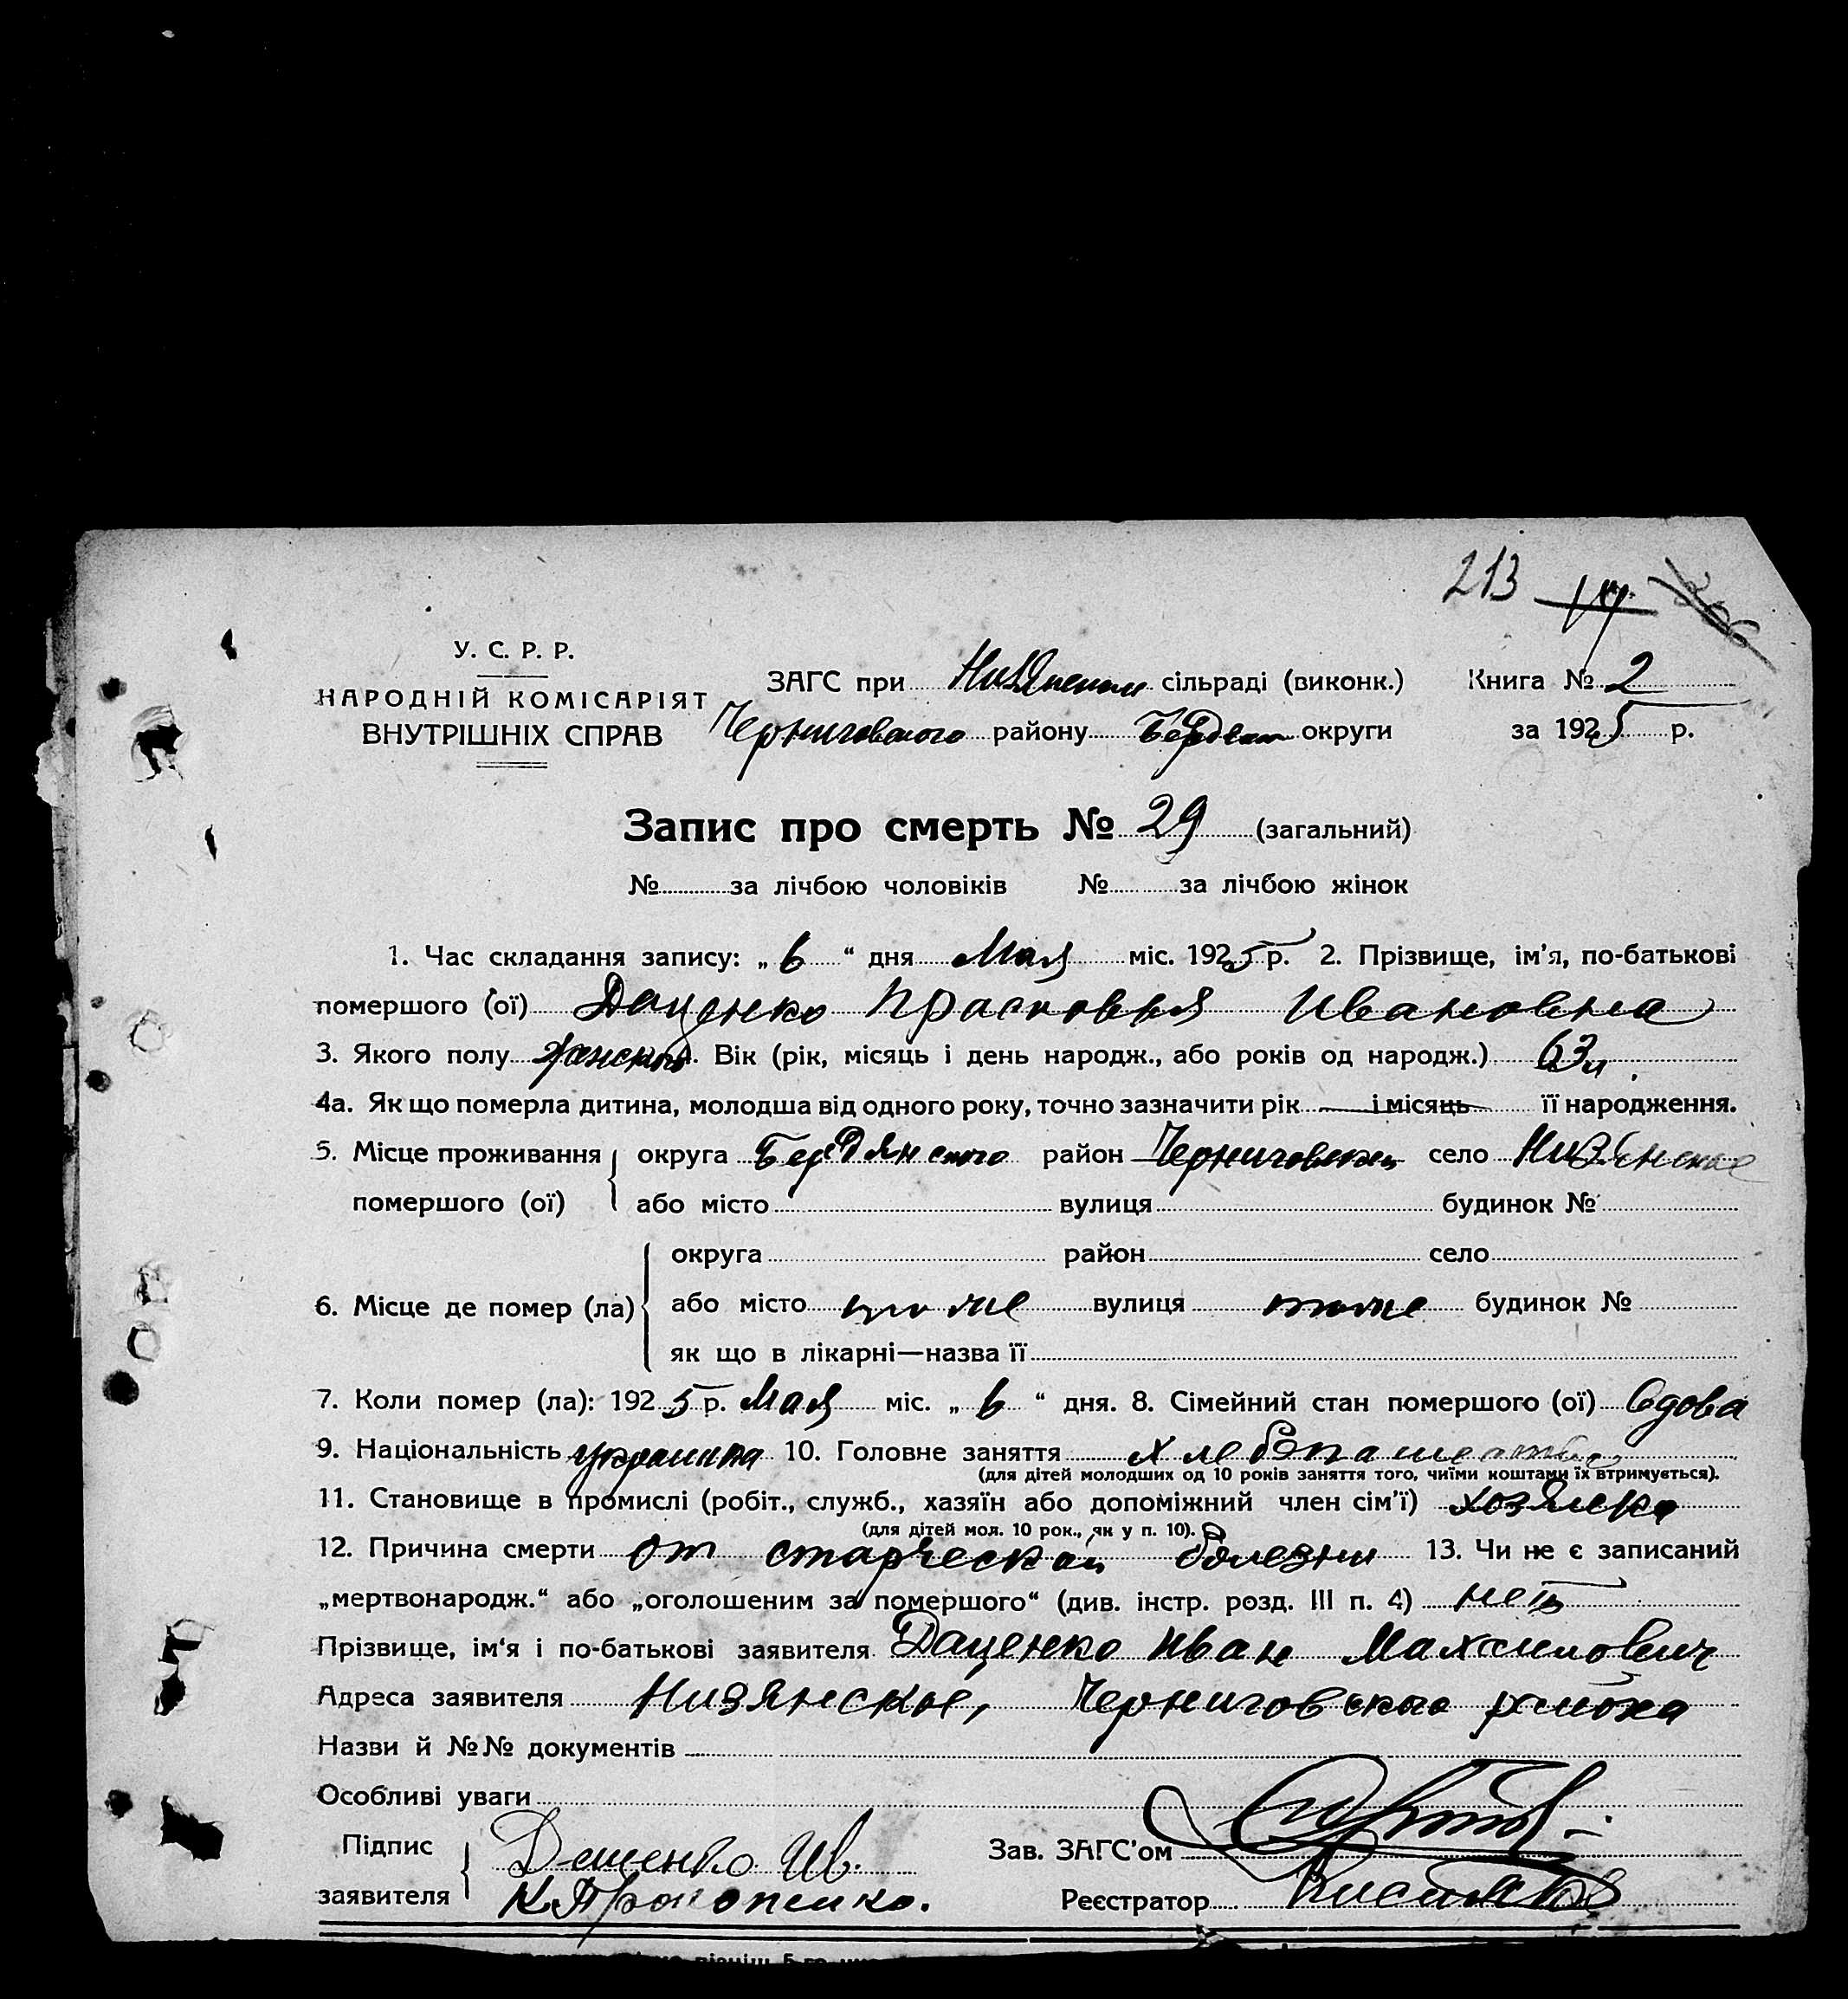 213 19 206
У. С. Р. Р.
НАРОДНІЙ КОМІСАРІЯТ
ВНУТРІШНІХ СПРАВ
ЗАГС при Низянском сільраді (виконк.) Книга № 2
Черниговского району Бердян округи за 1925 р.
Запис про смерть № 29 (загальний)
№ за лічбою чоловіків № за лічбою жінок
1. Час складання запису: „6“ дня Мая міс. 1925 р. 2. Прізвище, ім'я, по-батькові
помершого (ої) Даценко Прасковья Ивановна
3. Якого полу женского Вік (рік, місяць і день народж., або років од народж.) 63 л.
4а. Як що померла дитина, молодша від одного року, точно зазначити рік — і місяць її народження.
5. Місце проживання помершого (ої) округа Бердянского район Черниговский село Низянское
або місто вулиця будинок №
6. Місце де помер (ла) округа район село
або місто тоже вулиця тоже будинок №
як що в лікарні—назва її
7. Коли помер (ла): 1925 р. Мая міс. „6“ дня. 8. Сімейний стан помершого (ої) вдова
9. Національність украинка 10. Головне заняття хлебопашество
(для дітей молодших од 10 років заняття того, чиїми коштами їх втримується).
11. Становище в промислі (робіт., служб., хазяїн або допоміжний член сім'ї) хозяйка
(для дітей мол. 10 рок., як у п. 10).
12. Причина смерти от старческой болезни 13. Чи не є записаний
„мертвонародж.“ або „оголошеним за помершого“ (див. інстр. розд. III п. 4) нет
Прізвище, ім'я і по-батькові заявителя Даценко Иван Махсимович
Адреса заявителя Низянское, Черниговского района
Назви й №№ документів
Особливі уваги
Підпис заявителя Даценко Ив. Зав. ЗАГС'ом
К. Прокопенко. Реєстратор